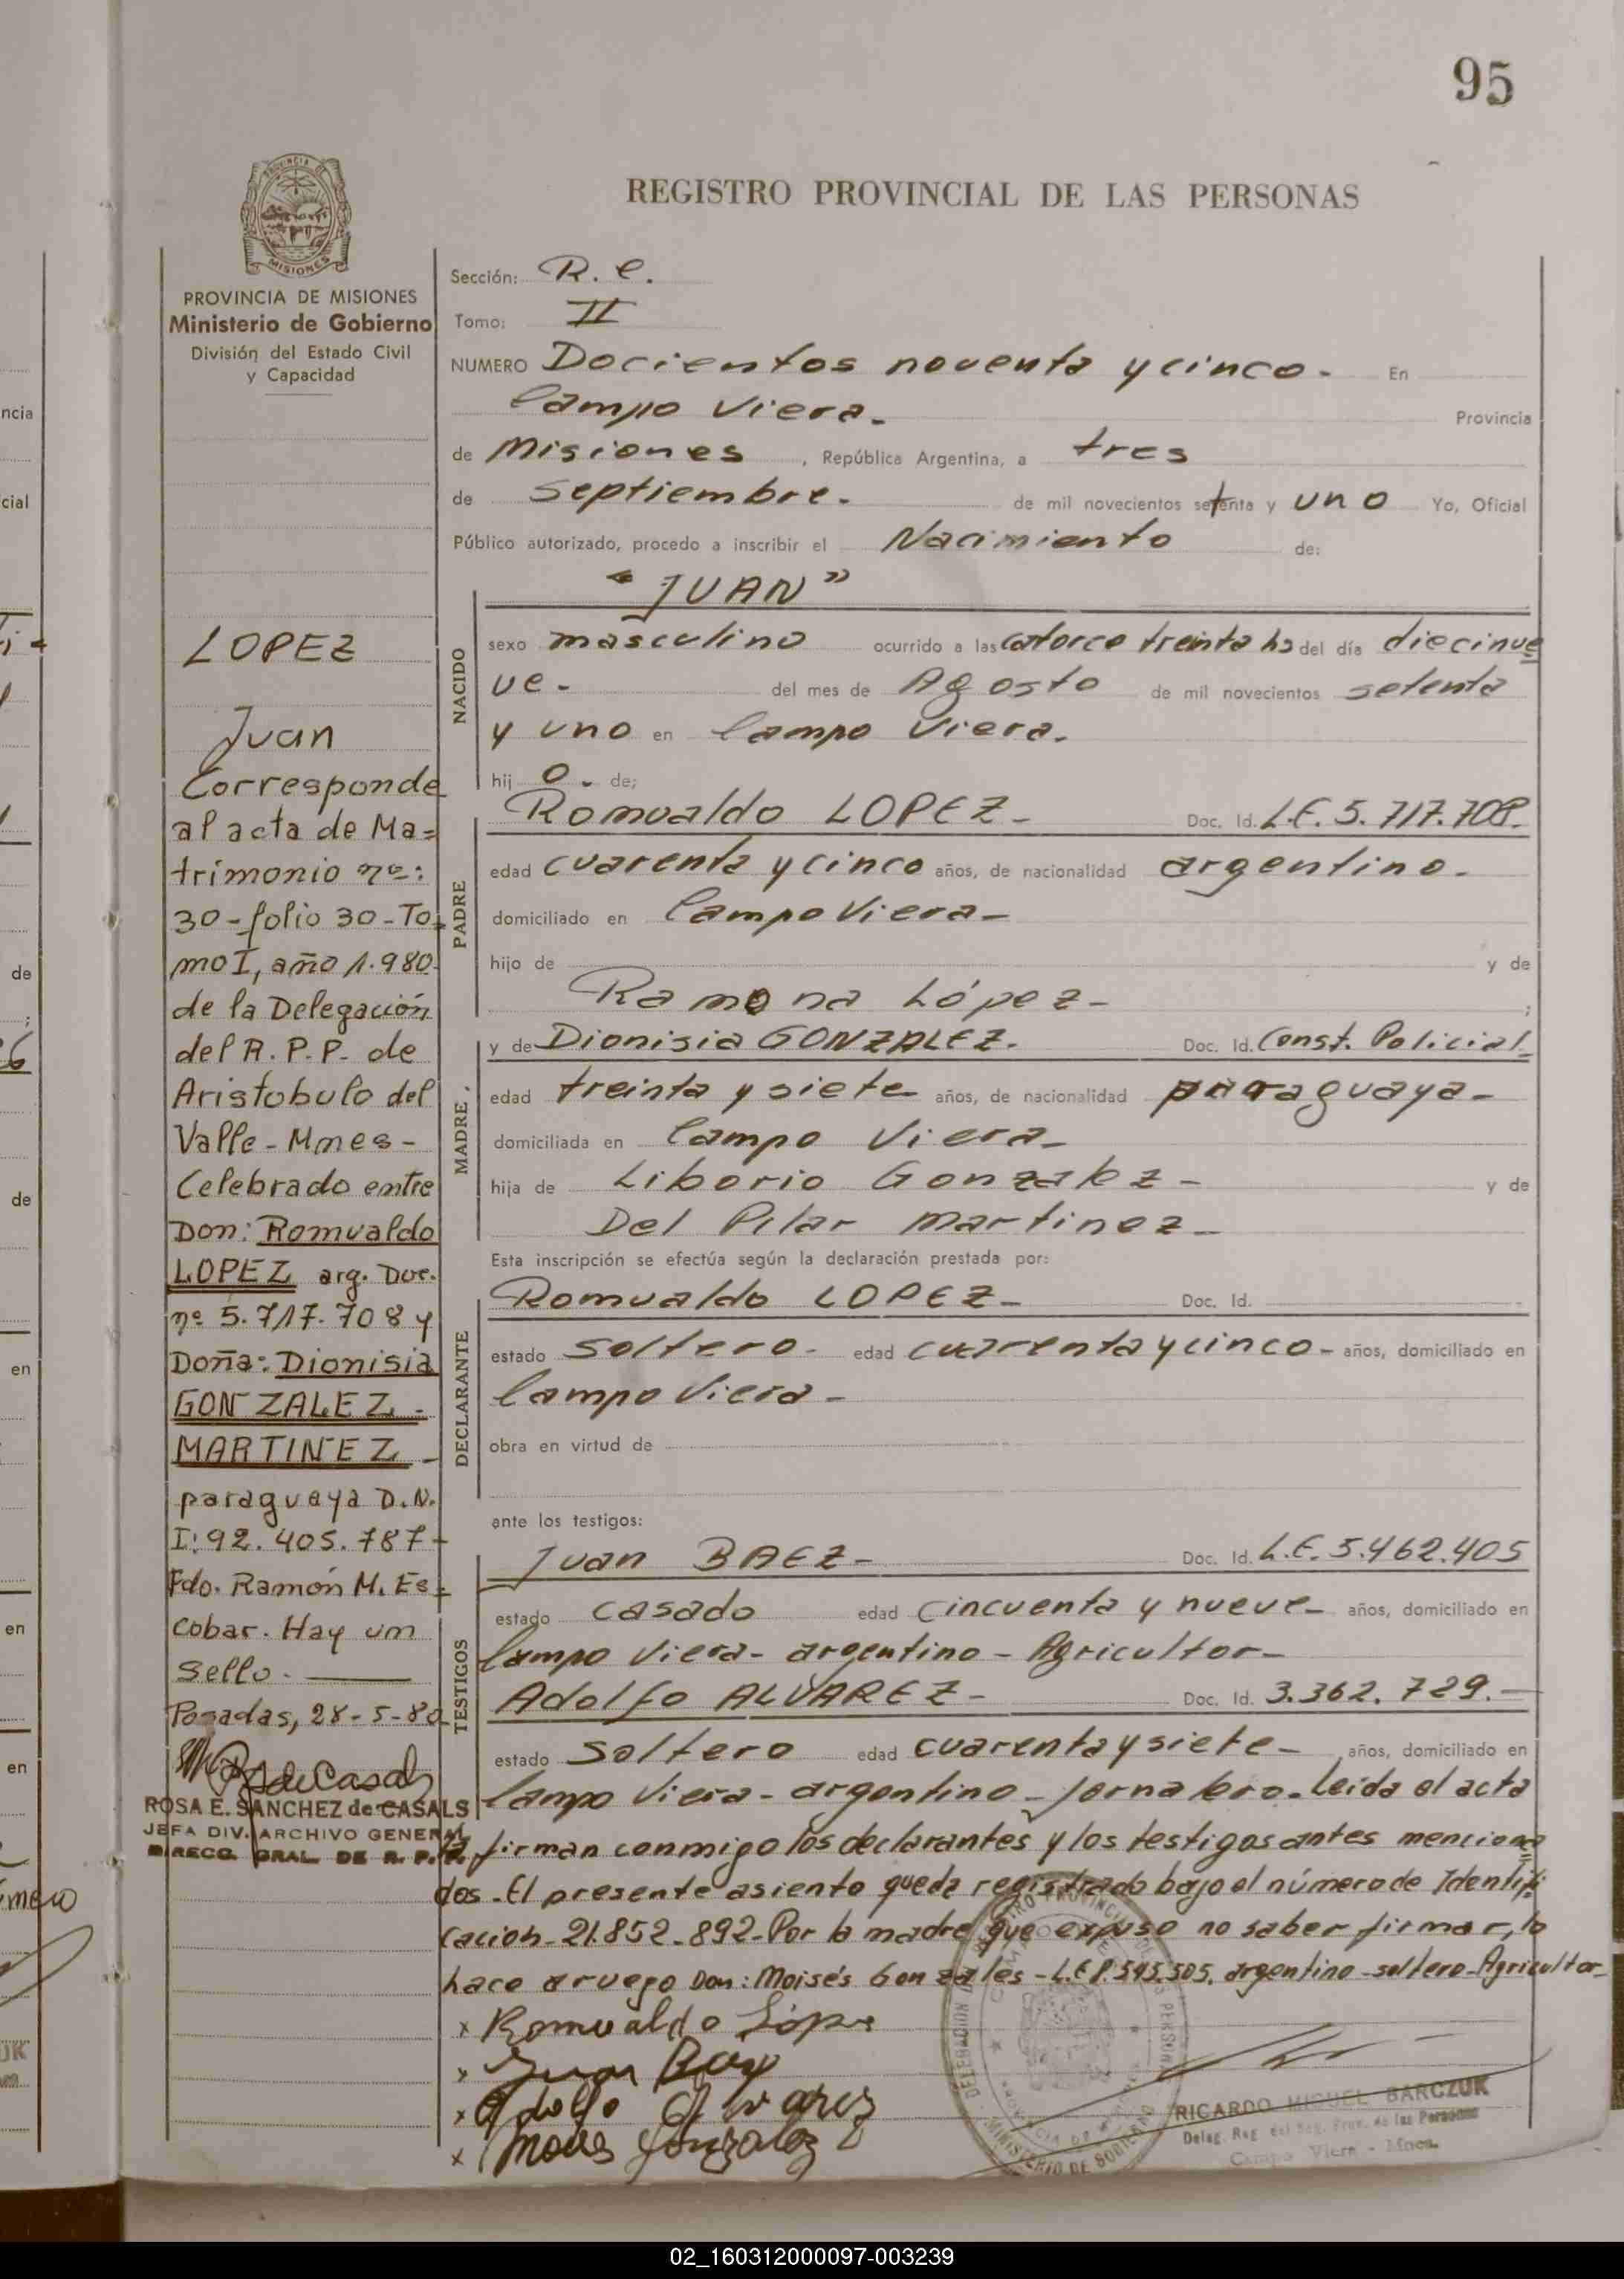 95
REGISTRO PROVINCIAL DE LAS PERSONAS
PROVINCIA DE MISIONES
Ministerio de Gobierno
División del Estado Civil
y Capacidad
Sección: R. C.
Tomo: II
NUMERO Docientos noventa y cinco. En
Campo Viera. Provincia
de Misiones, República Argentina, a tres
de Septiembre. de mil novecientos setenta y uno Yo, Oficial
Público autorizado, procedo a inscribir el Nacimiento de:
"JUAN"
NACIDO
sexo masculino ocurrido a las catorce treinta hs del día diecinue
ve. del mes de Agosto de mil novecientos setenta
y uno en Campo Viera.
hij o. de;
PADRE
Romualdo LOPEZ. Doc. Id. L.E. 5.717.708.
edad cuarenta y cinco años, de nacionalidad argentino.
domiciliado en Campo Viera-
hijo de y de
Ramona López- ;
MADRE
y de Dionisia GONZALEZ. Doc. Id. Const. Policial=
edad treinta y siete años, de nacionalidad paraguaya-
domiciliada en Campo Viera-
hija de Liborio Gonzalez- y de
Del Pilar Martinez-
Esta inscripción se efectúa según la declaración prestada por:
DECLARANTE
Romualdo LOPEZ- Doc. Id.
estado soltero- edad cuarenta y cinco- años, domiciliado en
Campo Viera-
obra en virtud de
ante los testigos:
TESTIGOS
Juan BAEZ- Doc. Id. L.E. 5.462.405
estado casado edad cincuenta y nueve- años, domiciliado en
Campo Viera- argentino- Agricultor-
Adolfo ALVAREZ- Doc. Id. 3.362.729.-
estado soltero edad cuarenta y siete- años, domiciliado en
Campo Viera- argentino- Jornalero. Leida el acta
la firman conmigo los declarantes y los testigos antes menciona
dos. El presente asiento queda registrado bajo el número de Identifi
cacion- 21.852.892- Por la madre que expuso no saber firmar, lo
hace a ruego Don: Moisés Gonzales- L.E. 545.505. argentino-soltero-Agricultor-
x Romualdo López
x Juan Baez
x Adolfo Alvarez
x Moises Gonzalez
RICARDO MIGUEL BARCZUK
Deleg. Reg. del Reg. Prov. de las Personas
Campo Viera - Mnes.
LOPEZ
Juan
Corresponde
al acta de Ma=
trimonio nº:
30-folio 30-To=
mo I, año 1.980
de la Delegación
del R.P.P. de
Aristobulo del
Valle-Mnes-
Celebrado entre
Don: Romualdo
LOPEZ arg. Doc.
nº 5.717.708 y
Doña: Dionisia
GONZALEZ-
MARTINEZ-
paraguaya D.N.
I: 92.405.787-
Fdo. Ramón M. Es=
cobar. Hay um
sello.
Posadas, 28-5-80
ROSA E. SANCHEZ de CASALS
JEFA DIV. ARCHIVO GENERAL
DIRECC. GRAL. DE R. P. P.
02_160312000097-003239